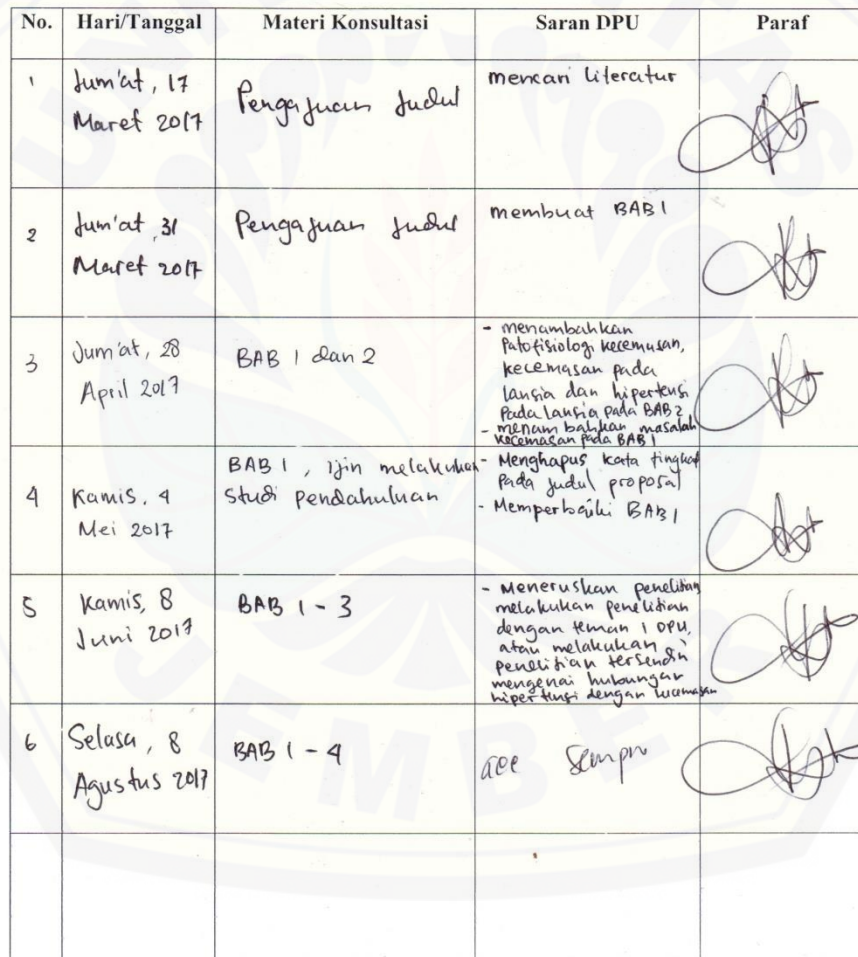 No. Hari/Tanggal Materi Konsultasi Saran DPU Paraf
1
Jum'at, 17
Maret 2017
Pengajuan Judul
mencari literatur
2
Jum'at, 31
Maret 2017
Pengajuan Judul
membuat BAB 1
3
Jum'at, 28
April 2017
BAB 1 dan 2
- menambahkan
Patofisiologi kecemasan,
kecemasan pada
lansia dan hipertensi
Pada lansia pada BAB 2
- menambahkan masalah
kecemasan pada BAB 1
4
Kamis, 4
Mei 2017
BAB 1, ijin melakukan
Studi pendahuluan
- Menghapus kata tingkat
Pada judul proposal
- Memperbaiki BAB 1
5
Kamis, 8
Juni 2017
BAB 1 - 3
- Meneruskan penelitian
melakukan penelitian
dengan teman 1 DPU,
atau melakukan
penelitian tersendiri
mengenai hubungan
hipertensi dengan kecemasan
6
Selasa, 8
Agustus 2017
BAB 1 - 4
acc Sempro
JEMBER